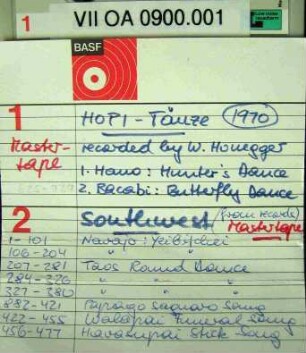 1 VII OA 0900.001
BASF
1 HOPI - Tänze (1970)
Master- recorded by W. Honegger
tape 1. Hano: Hunter's Dance
2. Bacabi: Butterfly Dance
2 Southwest (from records)
Mastertape
1-101 Navajo: Yeibichei
106-204 " "
207-281 Taos Round Dance
284-326 " " "
327-380 " " "
382-421 Papago Saguaro Song
422-455 Walapai Funeral Song
456-477 Havasupai Stick Song